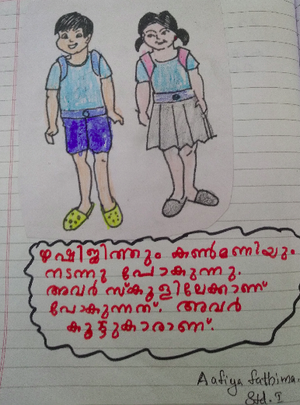 ഋഷിജിത്തും കൺമണിയും
നടന്നു പോകുന്നു.
അവർ സ്കൂളിലേക്കാണ്
പോകുന്നത്. അവർ
കൂട്ടുകാരാണ്.
Aafiya Fathima.
Std. I